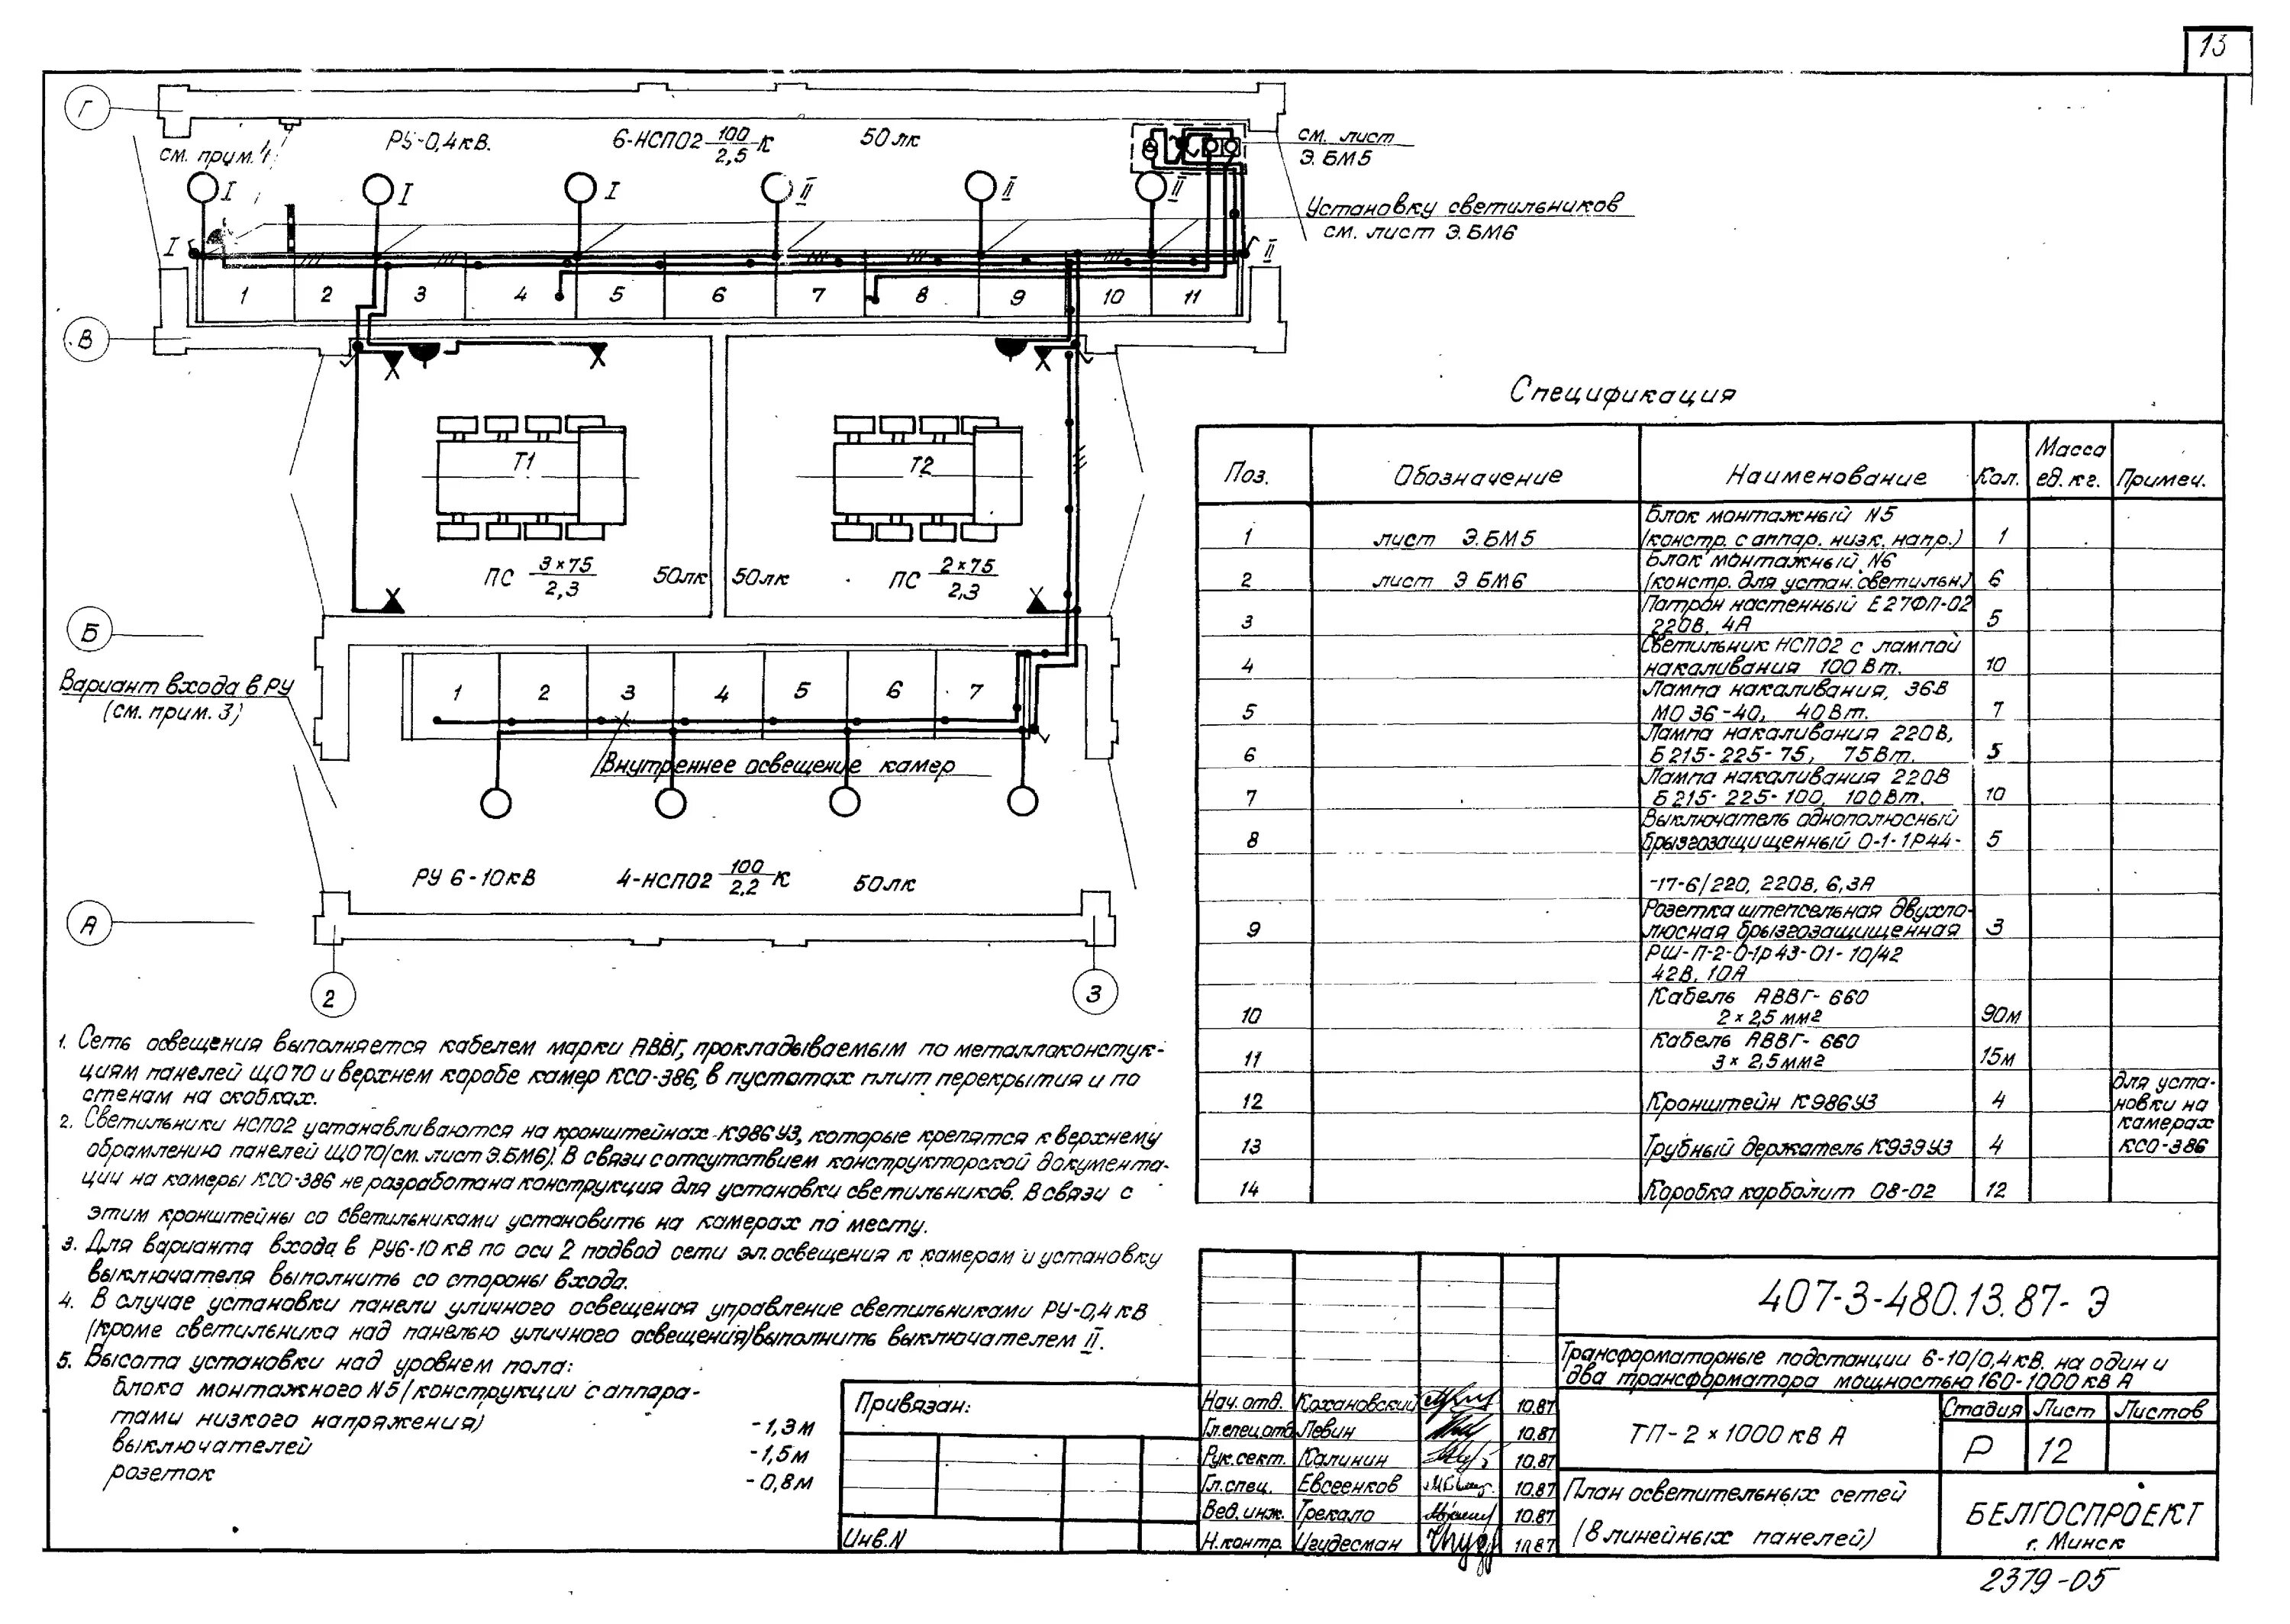 13
Г
см. прим. 4
РУ-0,4кВ.
6-НСП02 100/2,5 К
50лк
см. лист
Э.БМ5
I
I
I
II
II
II
Установку светильников
см. лист Э.БМ6
I
II
1 2 3 4 5 6 7 8 9 10 11
В
Т1
Т2
ПС 3×75/2,3
50лк
50лк
ПС 2×75/2,3
Б
Вариант входа в РУ
(см. прим. 3)
1 2 3 4 5 6 7
Внутреннее освещение камер
РУ 6-10кВ
4-НСП02 100/2,2 К
50лк
А
2
3
Спецификация
Поз. Обозначение Наименование Кол. Масса ед.кг. Примеч.
1 лист Э.БМ5 Блок монтажный N5
(констр. с аппар. низк. напр.) 1
2 лист Э БМ6 Блок монтажный N6
(констр. для устан. светильн.) 6
3 Патрон настенный Е27ФП-02
220В, 4А 5
4 Светильник НСП02 с лампой
накаливания 100Вт. 10
5 Лампа накаливания, 36В
МО36-40, 40Вт. 7
6 Лампа накаливания 220В,
Б215-225-75, 75Вт. 5
7 Лампа накаливания 220В
Б215-225-100, 100Вт. 10
8 Выключатель однополюсный
брызгозащищенный 0-1-1Р44- 5
-17-6/220, 220В, 6,3А
9 Розетка штепсельная двухпо-
люсная брызгозащищенная 3
РШ-П-2-0-1р43-01-10/42
42В, 10А
10 Кабель АВВГ-660
2×2,5мм2 90м
11 Кабель АВВГ-660
3×2,5мм2 15м
12 Кронштейн К986У3 4
13 Трубный держатель К939У3 4
для уста-
новки на
камерах
КСО-386
14 Коробка карболит 08-02 12
1. Сеть освещения выполняется кабелем марки АВВГ, прокладываемым по металлоконстук-
циям панелей ЩО70 и верхнем коробе камер КСО-386, в пустотах плит перекрытия и по
стенам на скобках.
2. Светильники НСП02 устанавливаются на кронштейнах К986У3, которые крепятся к верхнему
обрамлению панелей ЩО70(см. лист Э.БМ6). В связи с отсутствием конструкторской документа-
ции на камеры КСО-386 не разработана конструкция для установки светильников. В связи с
этим кронштейны со светильниками установить на камерах по месту.
3. Для варианта входа в РУ6-10кВ по оси 2 подвод сети эл.освещения к камерам и установку
выключателя выполнить со стороны входа.
4. В случае установки панели уличного освещения управление светильниками РУ-0,4кВ
(кроме светильника над панелью уличного освещения) выполнить выключателем II.
5. Высота установки над уровнем пола:
блока монтажного N5/конструкции с аппара-
тами низкого напряжения) -1,3м
выключателей -1,5м
розеток -0,8м
Привязан:
Инв.N
Нач. отд. Кохановский 10.87
Гл.спец.отд Левин 10.87
Рук.сект. Калинин 10.87
Гл.спец. Евсеенков 10.87
Вед.инж. Трекало 10.87
Н.контр. Цгудесман 10.87
407-3-480.13.87-Э
Трансформаторные подстанции 6-10/0,4кВ. на один и
два трансформатора мощностью 160-1000кВА
ТП-2×1000кВА
Стадия Лист Листов
Р 12
План осветительных сетей
(8 линейных панелей)
БЕЛГОСПРОЕКТ
г. Минск
2379-05